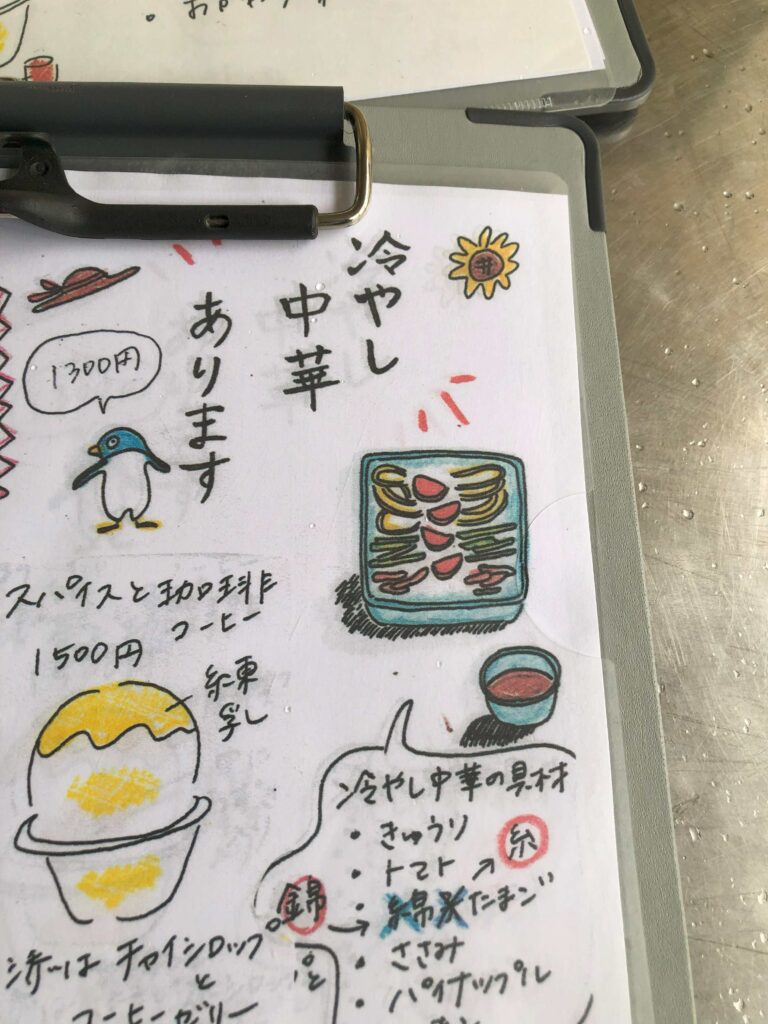 冷やし
中華
あります
1300円
スパイスと珈琲
コーヒー
1500円
練
乳
冷やし中華の具材
・きゅうり
・トマト
糸
錦
・綿米たまご
・ささみ
・パイナップル
は チャイシロップ
と
コーヒーゼリー